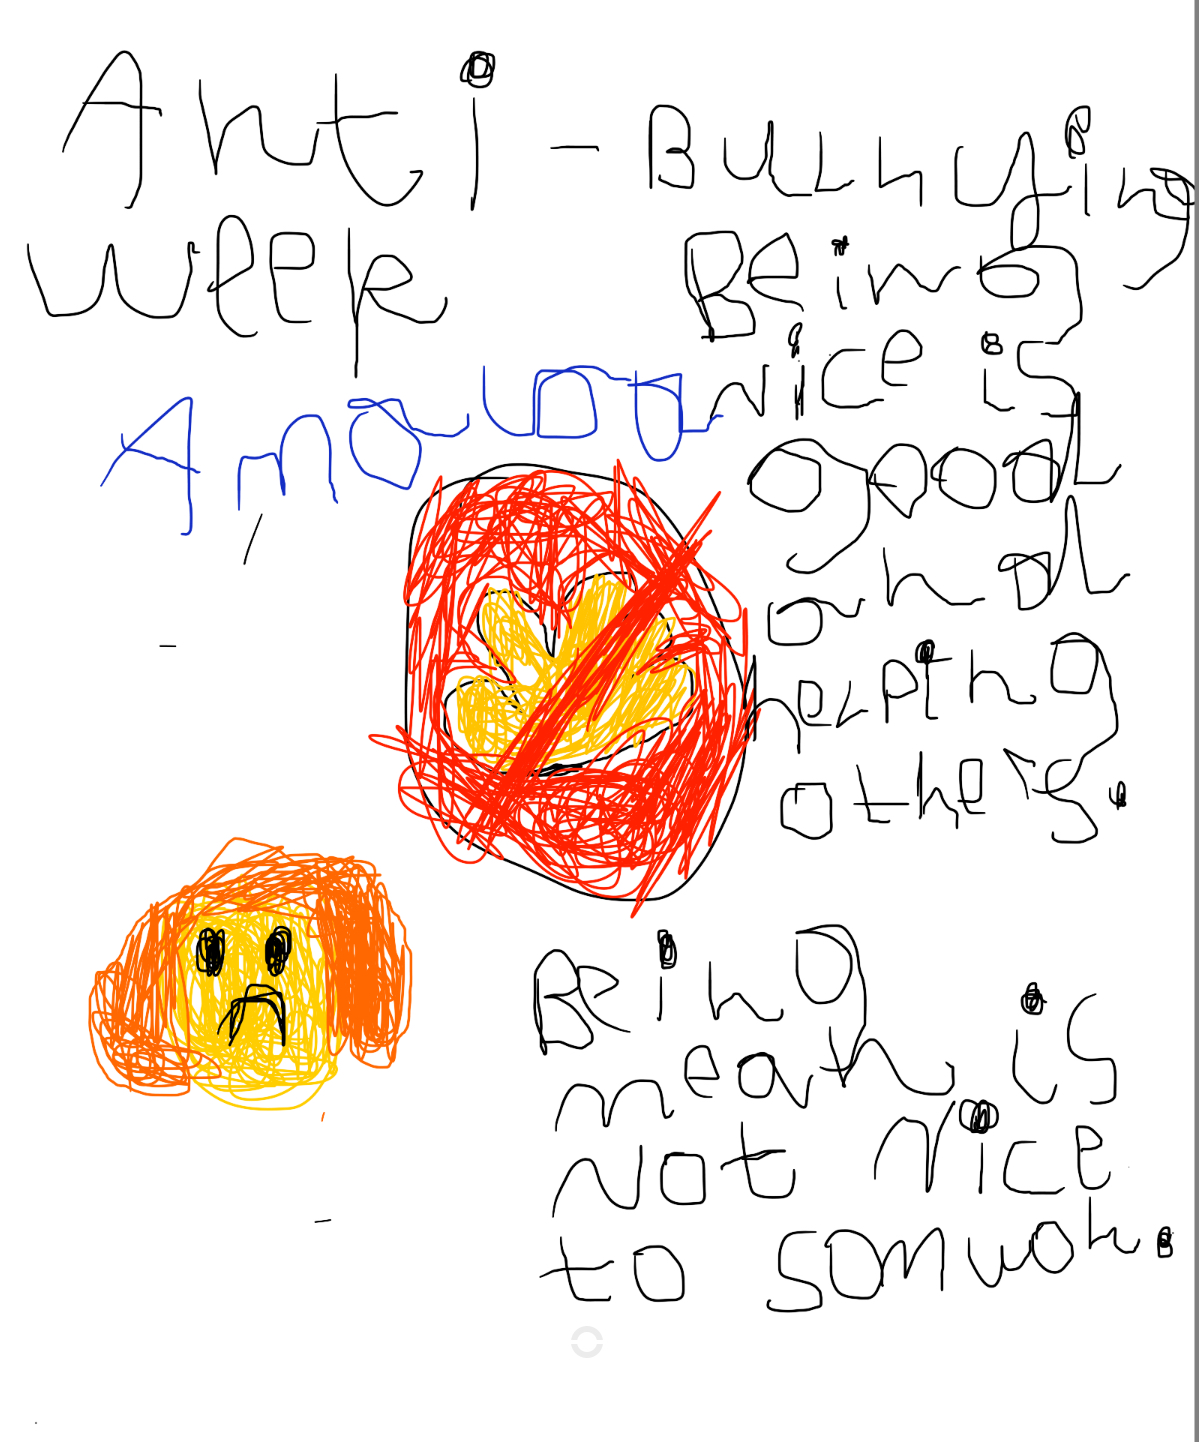 Anti-Bullying
week
Being
nice is
good
and
helping
others.
Being
mean is
Not nice
to somwon.